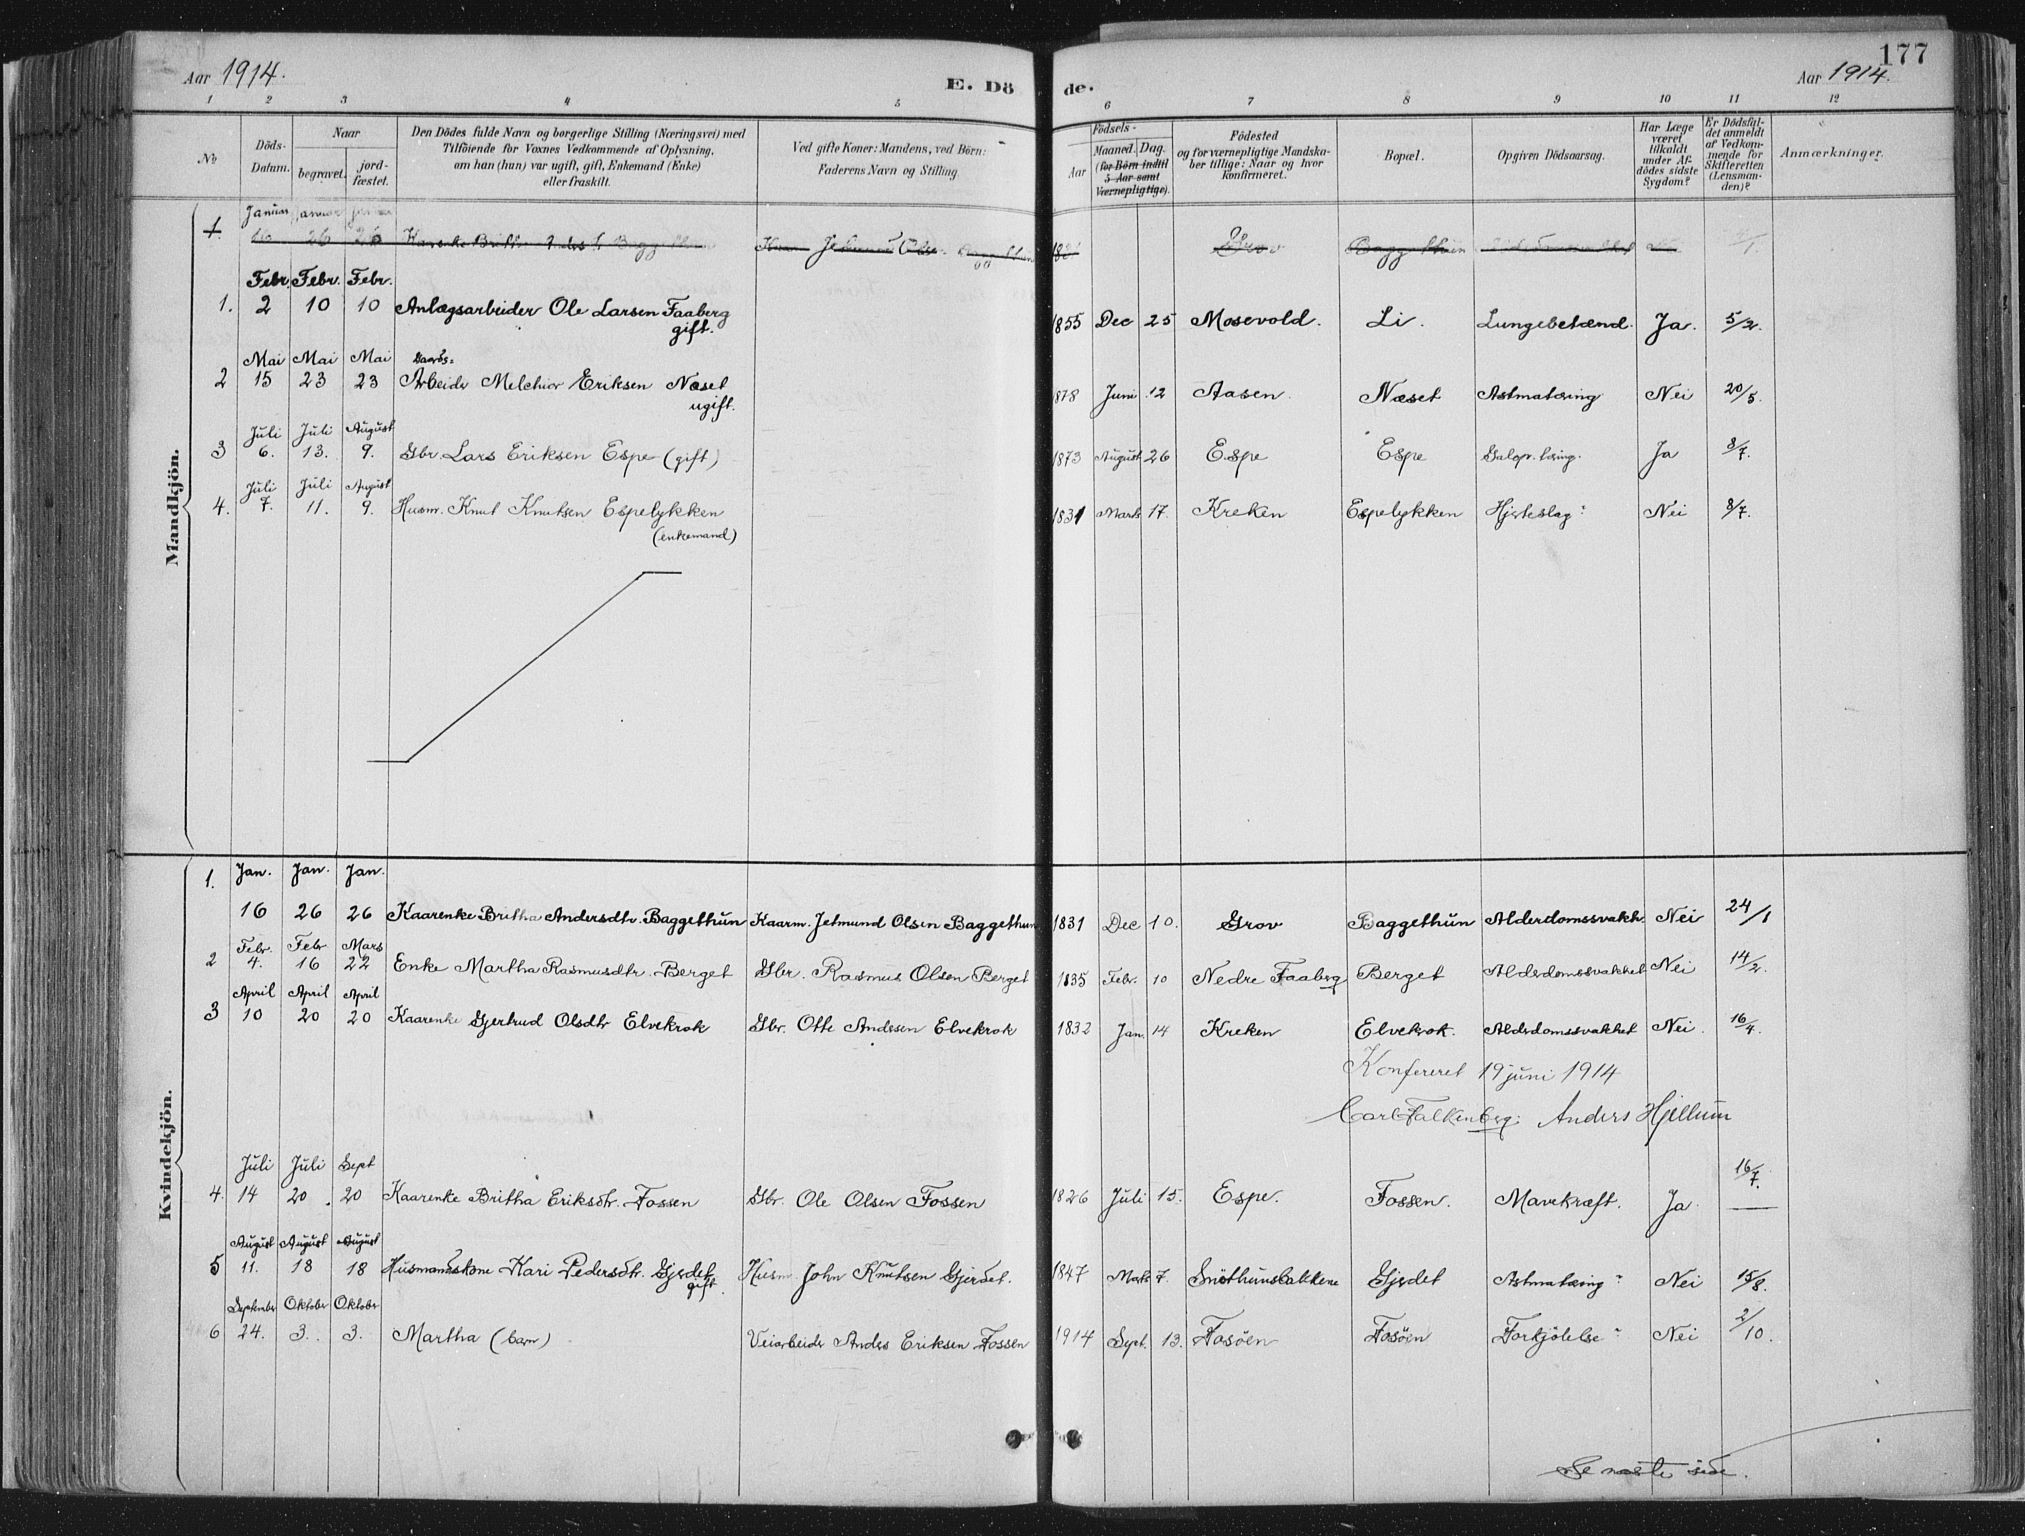 177
Aar 1914. E. Dö de. Aar 1914.
1 2 3 4 5 6 7 8 9 10 11 12
No Döds-Datum. Naar begravet. jord-fæstet. Den Dödes fulde Navn og borgerlige Stilling (Næringsvei) med Tilföiende for Voxnes Vedkommende af Oplysning, om han (hun) var ugift, gift, Enkemand (Enke) eller fraskilt. Ved gifte Koner: Mandens, ved Börn: Faderens Navn og Stilling. Födsels- Aar Maaned. Dag. (for Börn indtil 5 Aar samt Værnepligtige). Födested og for værnepligtige Mandskaber tillige: Naar og hvor konfirmeret. Bopæl. Opgiven Dödsaarsag. Har Læge været tilkaldt under Afdödes sidste Sygdom? Er Dödsfaldet anmeldt af Vedkommende for Skifteretten (Lensmanden)? Anmærkninger.
Mandkjön.
Januar Januar
1. 16 26 26 Grov
Febr. Febr. Febr.
1. 2 10 10 Anlægsarbeider Ole Larsen Faaberg 1855 Dec 25 Mosevold. Li. Lungebetænd. Ja. 5/2.
gift.
Mai Mai Mai
2 15 23 23 Arbeider Melchior Eriksen Næset 1878 Juni 12 Aasen. Næset Astmatæring Nei 20/5.
ugift.
Juli Juli August
3 6. 13. 9. Gbr. Lars Eriksen Espe (gift) 1873 August 26 Espe Espe Galop. tæring. Ja 8/7.
Juli Juli August
4. 7. 11. 9. Husm. Knut Knutsen Espelykken 1831 Marts 17. Kreken Espelykken Hjerteslag? Nei 8/7.
(enkemand)
Kvindekjön.
Jan. Jan. Jan.
1. 16 26 26 Kaarenke Britha Andersdtr. Baggethun Kaarm. Jetmund Olsen Baggethun 1831 Dec 10. Grov Baggethun Alderdomssvakh. Nei 24/1
Febr. Febr Mars
2 4. 16 22 Enke Martha Rasmusdtr. Berget Gbr. Rasmus Olsen Berget 1835 Febr. 10 Nedre Faaberg Berget Alderdomssvakhet Nei 14/2.
April April April
3 10 20 20 Kaarenke Gjertrud Olsdtr Elvekrok Gbr. Otte Andersen Elvekrok 1832 Jan. 14 Kreken Elvekrok. Alderdomssvakhet Nei. 16/4.
Konfereret 19 juni 1914
Carl Falkenberg. Anders Hjellum
Juli Juli Sept
4. 14 20. 20 Kaarenke Britha Eriksdtr. Fossen Gbr. Ole Olsen Fossen 1826 Juli 15. Espe. Fossen. Mavekræft. Ja. 16/7.
August August August
5 11. 18 18 Husmandskone Kari Pedersdtr. Gjerdet Husm. John Knutsen Gjerdet. 1847 Marts 7. Snöthunsbakkene Gjerdet Astmatæring? Nei 15/8.
gift.
September Oktober Oktober
6 24. 3. 3. Martha (barn) Veiarbeider Anders Eriksen Fossen 1914 Sept. 13. Fosöen Fosöen Forkjölelse? Nei 2/10.
Se næste side.